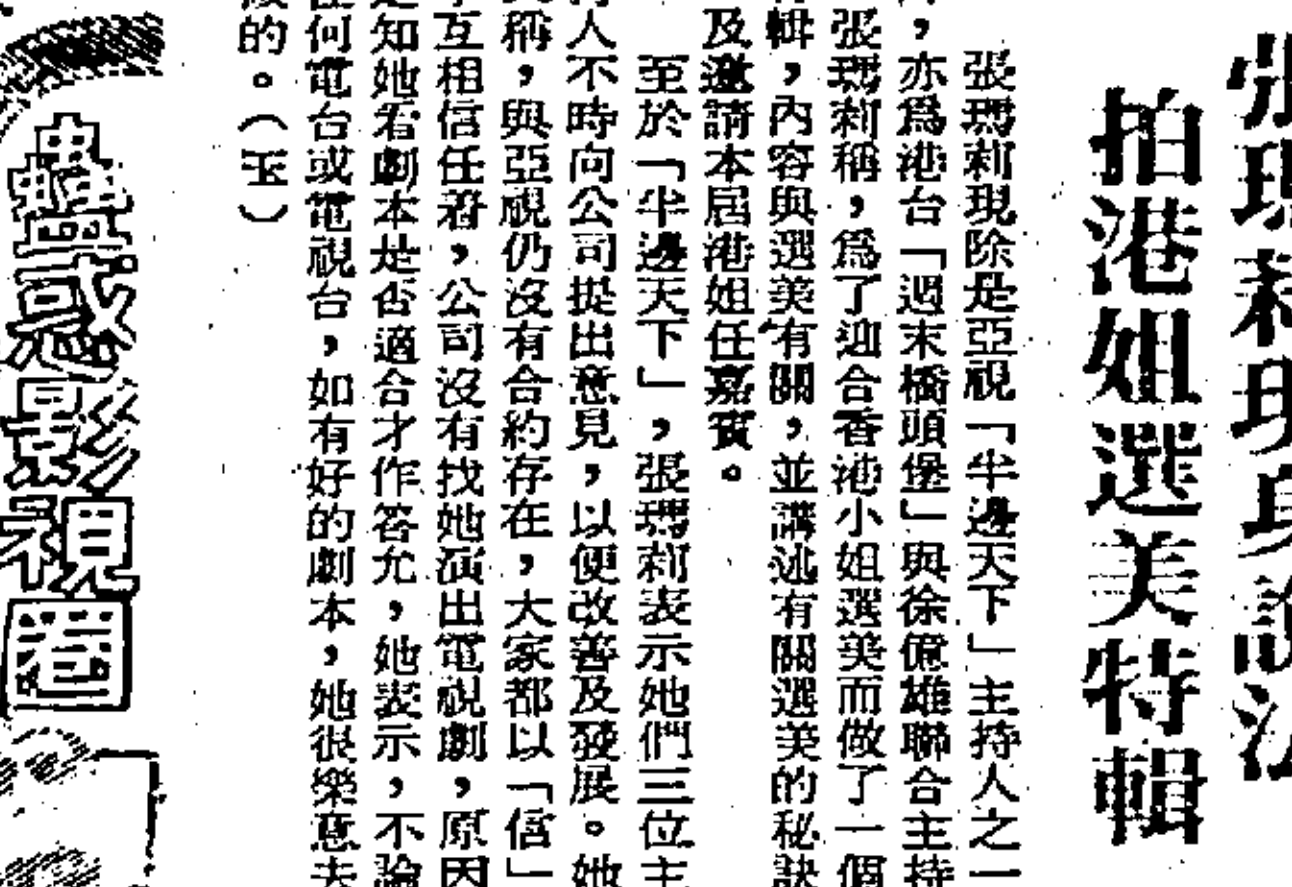 張瑪莉現身說法
拍港姐選美特輯
張瑪莉現除是亞視「半邊天下」主持人之一
,亦爲港台「週末橋頭堡」與徐億雄聯合主持
張瑪莉稱,爲了迎合香港小姐選美而做了一個
輯,內容與選美有關,並講述有關選美的秘訣
及邀請本屆港姐任嘉賓。
至於「半邊天下」,張瑪莉表示她們三位主
人不時向公司提出意見,以便改善及發展。她
稱,與亞視仍沒有合約存在,大家都以「信」
互相信任着,公司沒有找她演出電視劇,原因
知她看劇本是否適合才作答允,她表示,不論
任何電台或電視台,如有好的劇本,她很樂意去
的。(玉)
蠱惑影視圈